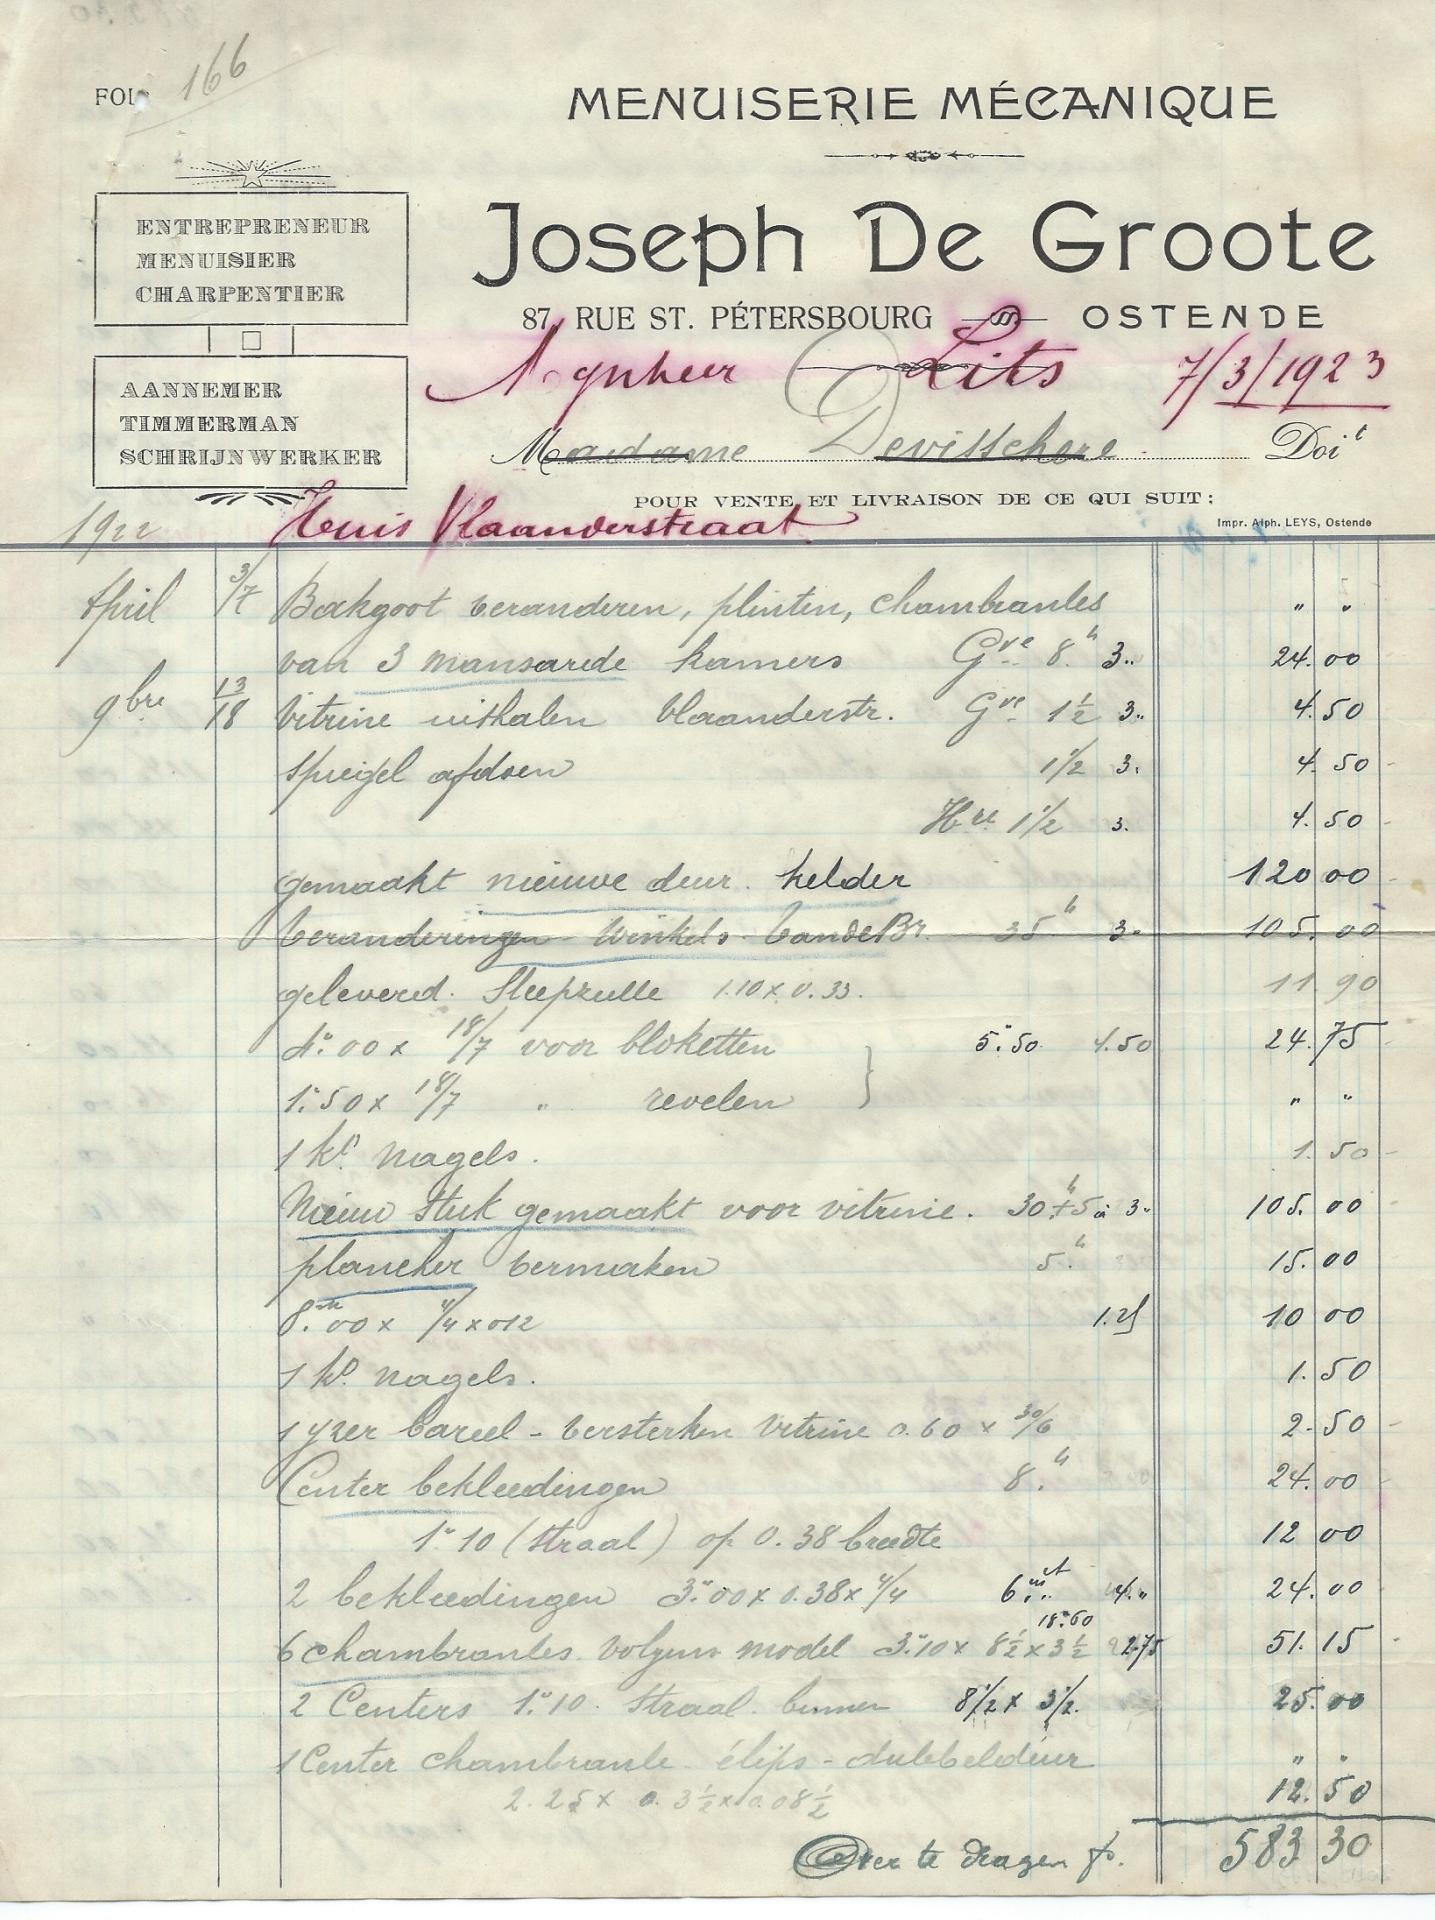 FOL
166
MENUISERIE MÉCANIQUE
ENTREPRENEUR
MENUISIER
CHARPENTIER
AANNEMER
TIMMERMAN
SCHRIJNWERKER
Joseph De Groote
87, RUE ST. PÉTERSBOURG OSTENDE
Mynheer Lits 7/3/1923
Madame Devisschere Doit
POUR VENTE ET LIVRAISON DE CE QUI SUIT:
Impr. Alph. LEYS, Ostende
1922 Huis Vlaanderstraat
April 3/7 Bakgoot veranderen, plinten, chambranles " "
van 3 mansarde kamers Gve 8h 3.. 24.00
9bre 13/18 Vitrine uithalen Vlaanderstr. Gve 1½ 3.. 4.50
spiegel afdoen 1½ 3. 4.50
Hre 1½ 3. 4.50
gemaakt nieuwe deur. kelder 120 00
veranderingen Winkels VandeBr. 35h 3. 105.00
geleverd. Sleepzulle 1.10 x 0.33. 11.90
4m.00 x 18/7 voor bloketten 5m.50 4.50 24.75
1m.50 x 18/7 " revelen " "
1 ko nagels. 1.50
Nieuw stuk gemaakt voor vitrine. 30h+5 à 3.. 105.00
plancher vermaken 5.h 15.00
8m.00 x 4/4 x 012 1.25 10 00
1 ko nagels. 1.50
1 yzer bareel - versterken vitrine 0.60 x 30/6 2.50
Center bekleedingen 8.h 24.00
1m10 (straal) op 0.38 breedte 12 00
2 bekleedingen 3m.00 x 0.38 x 4/4 6mt 4." 24.00
18m.60
6 chambranles volgens model 3m.10 x 8½ x 3½ 2.75 51.15
2 Centers 1m.10. straal. binnen 8½ x 3½. 25.00
1 Center chambranle élips - dubbeldeur " "
2.25 x 0.3½ x 0.08½ 12.50
Over te dragen fr. 583 30